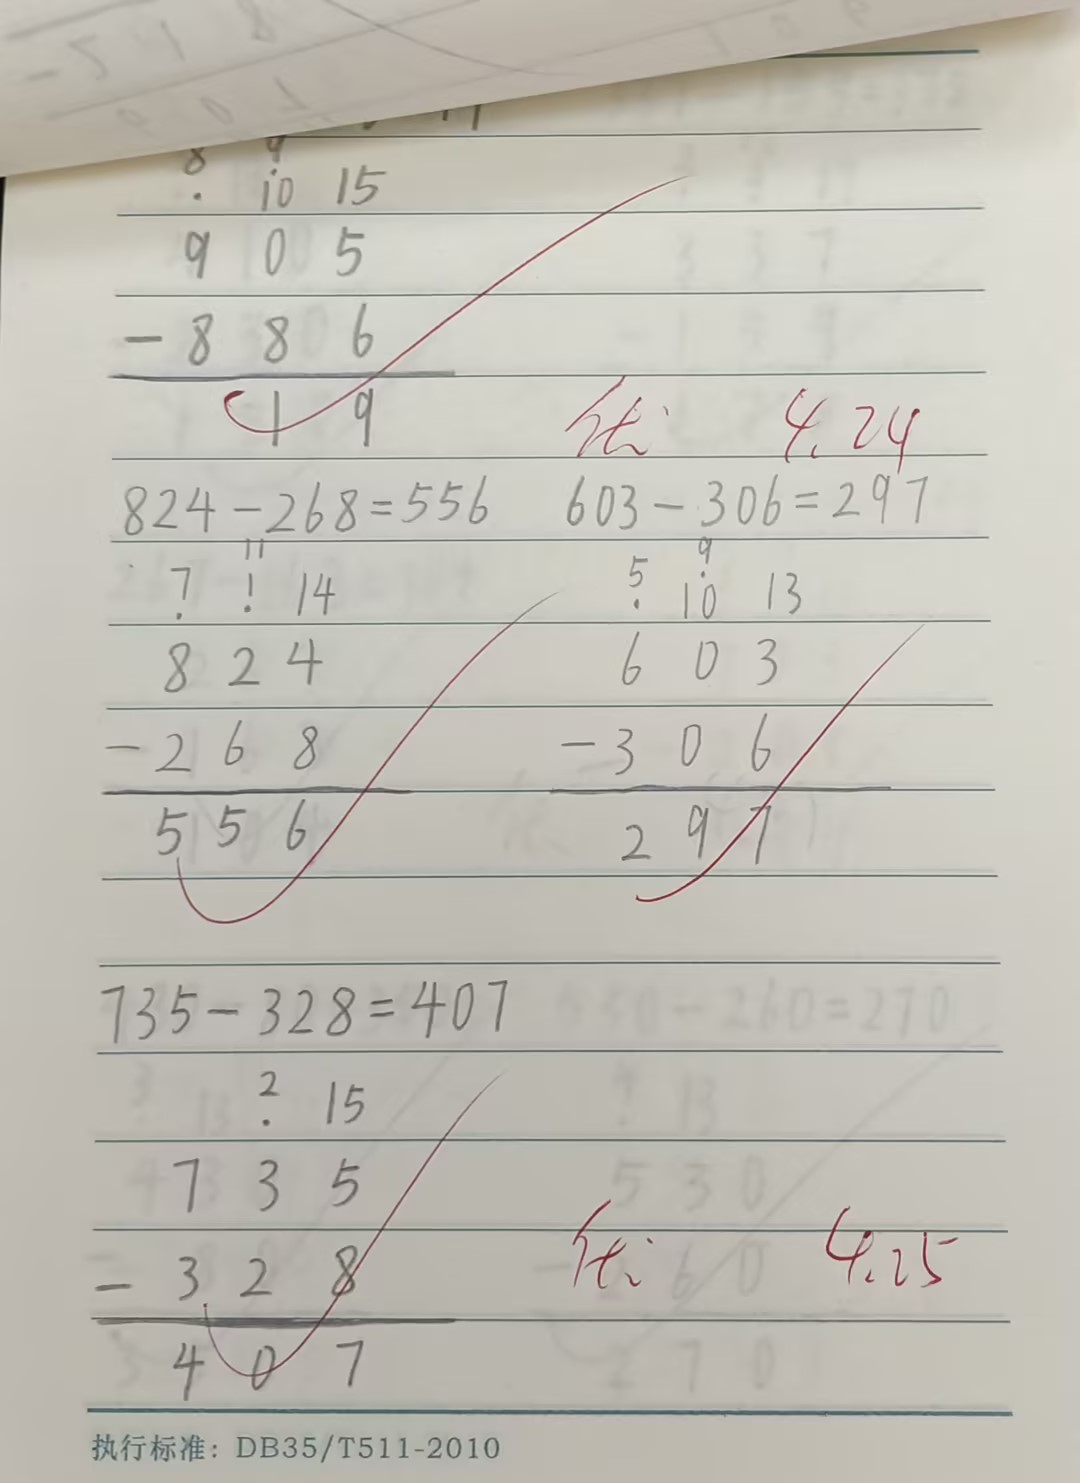 8 9
. 10 15
9 0 5
- 8 8 6
1 9
优 4.24
824-268=556 603-306=297
11 9
7 1 14 5 10 13
8 2 4 6 0 3
- 2 6 8 - 3 0 6
5 5 6 2 9 7
735-328=407
2 15
7 3 5
- 3 2 8
优 4.25
4 0 7
执行标准：DB35/T511-2010